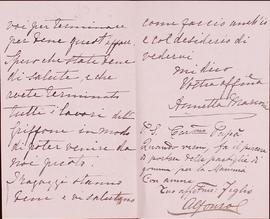 voi per terminare
per bene quest'affare.
Spero che state bene
di salute, e che
avete terminato
tutti i lavori del
Giffone in modo
di poter venire da
noi presto.
I ragazzi stanno
bene e vi salutano
come faccio anch'io
e col desiderio di
vedervi
mi dico
Vostra affma
Annetta
P.S. Carissimo Papà
Quando vieni, fa il piacere
di portare della pastiglia di
gomma per la Mamma
Con amore
Tuo affettmo figlio
Alfonso